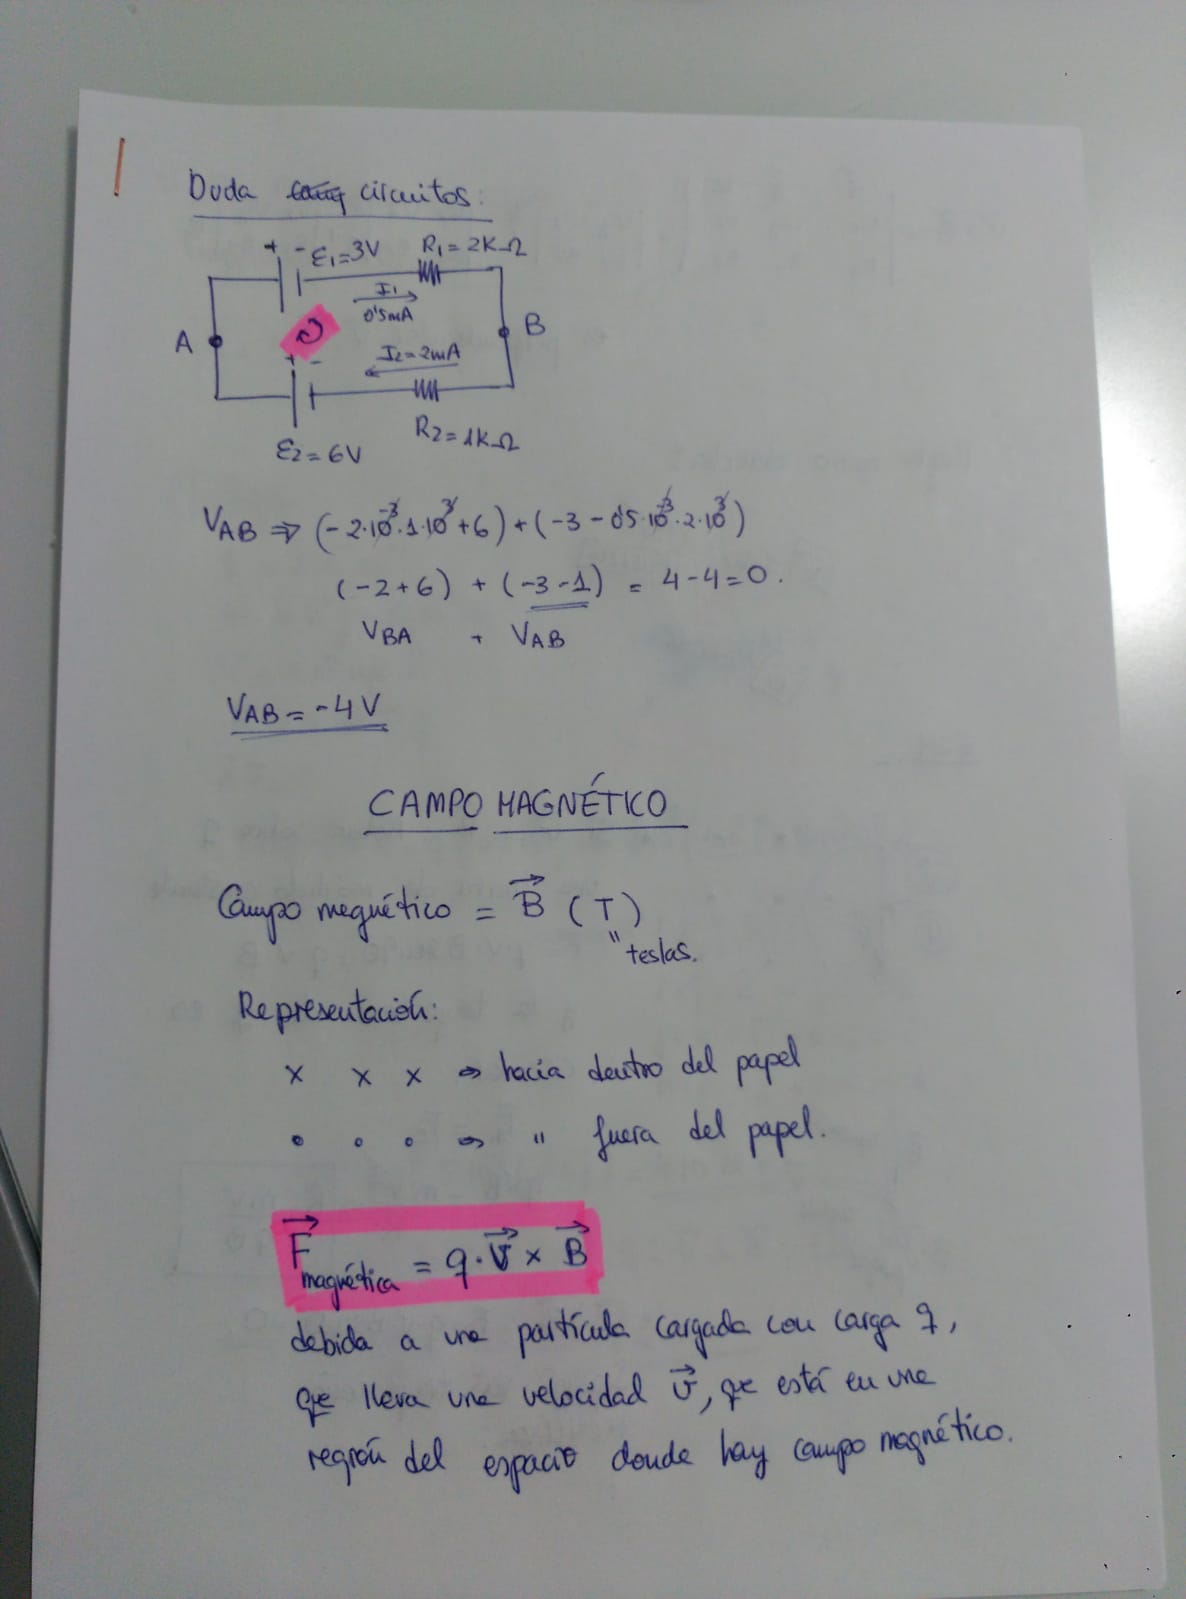 Duda circuitos:
+ - ε₁=3V R₁=2KΩ
I₁
0'5mA
A B
+ - I₂=2mA
R₂=1KΩ
ε₂=6V
V_AB ⇒ (-2·10⁻³·1·10³+6)+(-3-0'5·10⁻³·2·10³)
(-2+6) + (-3-1) = 4-4=0.
V_BA + V_AB
V_AB=-4V
CAMPO MAGNÉTICO
Campo magnético = B⃗ (T)
" teslas.
Representación:
x x x ⇒ hacia dentro del papel
• • • ⇒ " fuera del papel.
F⃗magnética = q·v⃗ x B⃗
debida a una partícula cargada con carga q,
que lleva una velocidad v⃗, que está en una
región del espacio donde hay campo magnético.